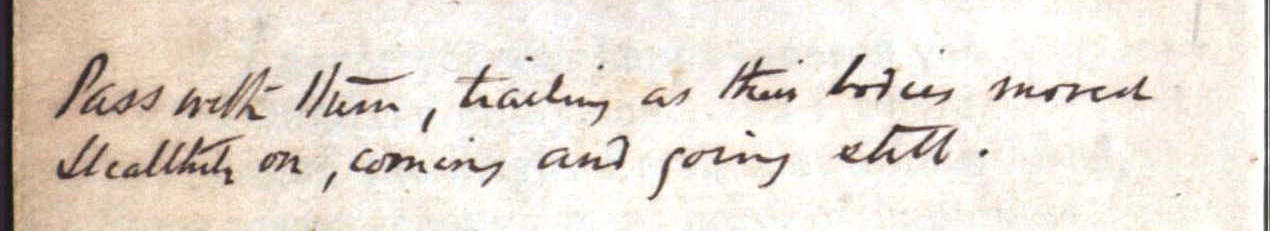 Pass with them, trailing as their bodies moved
Stealthily on, coming and going still.